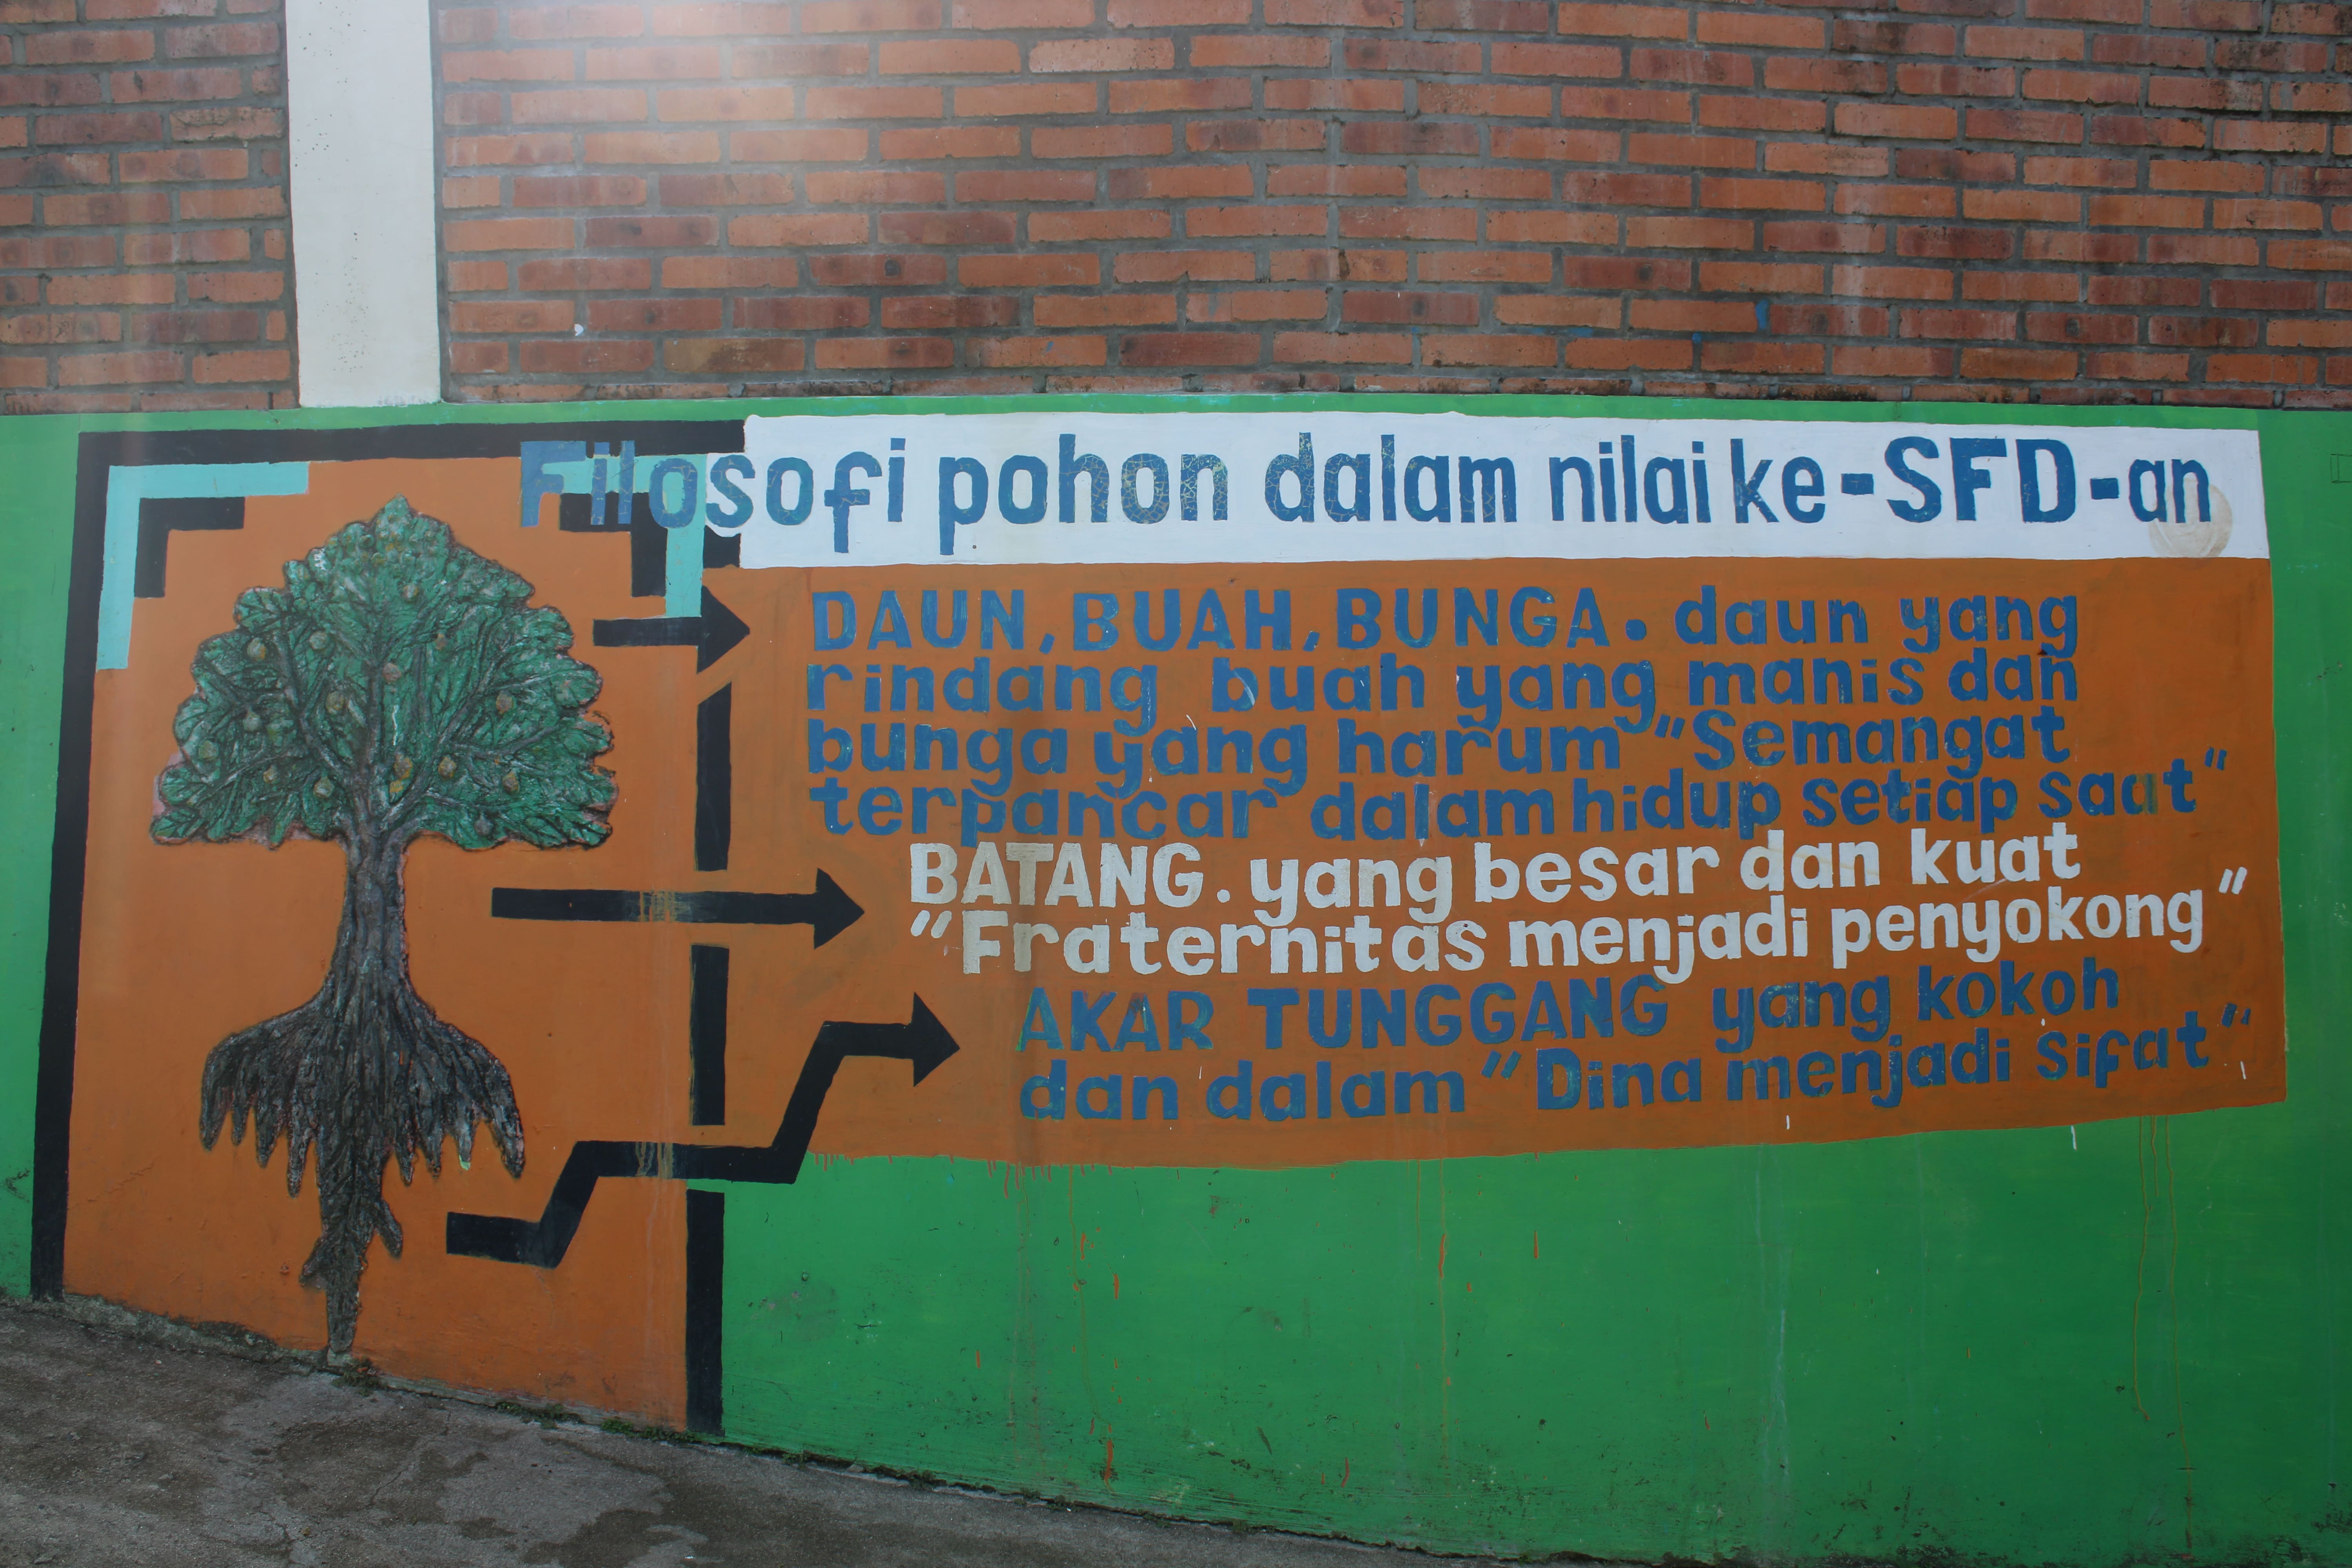 Filosofi pohon dalam nilai ke-SFD-an
DAUN, BUAH, BUNGA. daun yang
rindang buah yang manis dan
bunga yang harum "Semangat
terpancar dalam hidup setiap saat"
BATANG. yang besar dan kuat
"Fraternitas menjadi penyokong"
AKAR TUNGGANG yang kokoh
dan dalam "Dina menjadi sifat"